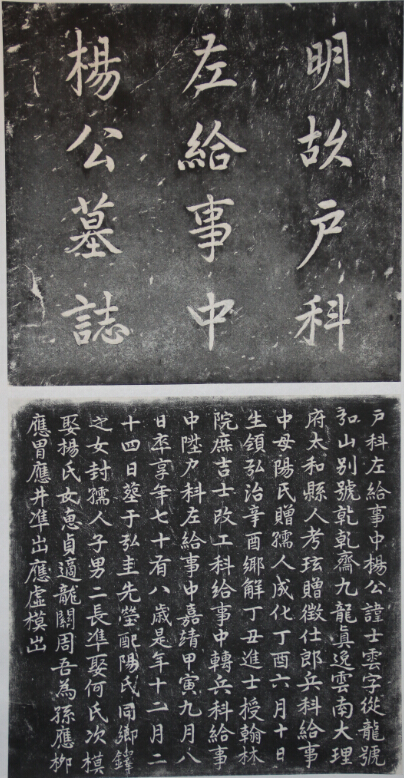 明故戶科
左給事中
楊公墓誌
戶科左給事中楊公諱士雲字從龍號
弘山別號乾乾齋九龍真逸雲南大理
府太和縣人考玹贈徵仕郎兵科給事
中母陽氏贈孺人成化丁酉六月十日
生領弘治辛酉鄉解丁丑進士授翰林
院庶吉士改工科給事中轉兵科給事
中陞戶科左給事中嘉靖甲寅九月八
日卒享年七十有八歲是年十二月二
十四日葬于弘圭先塋配陽氏同鄉鐸
之女封孺人子男二長凖娶何氏次模
娶楊氏女惠貞適龍關周吾為孫應柳
應胃應井凖出應虛模出